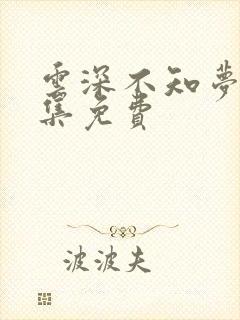 雲深不知夢
集免費
波波夫